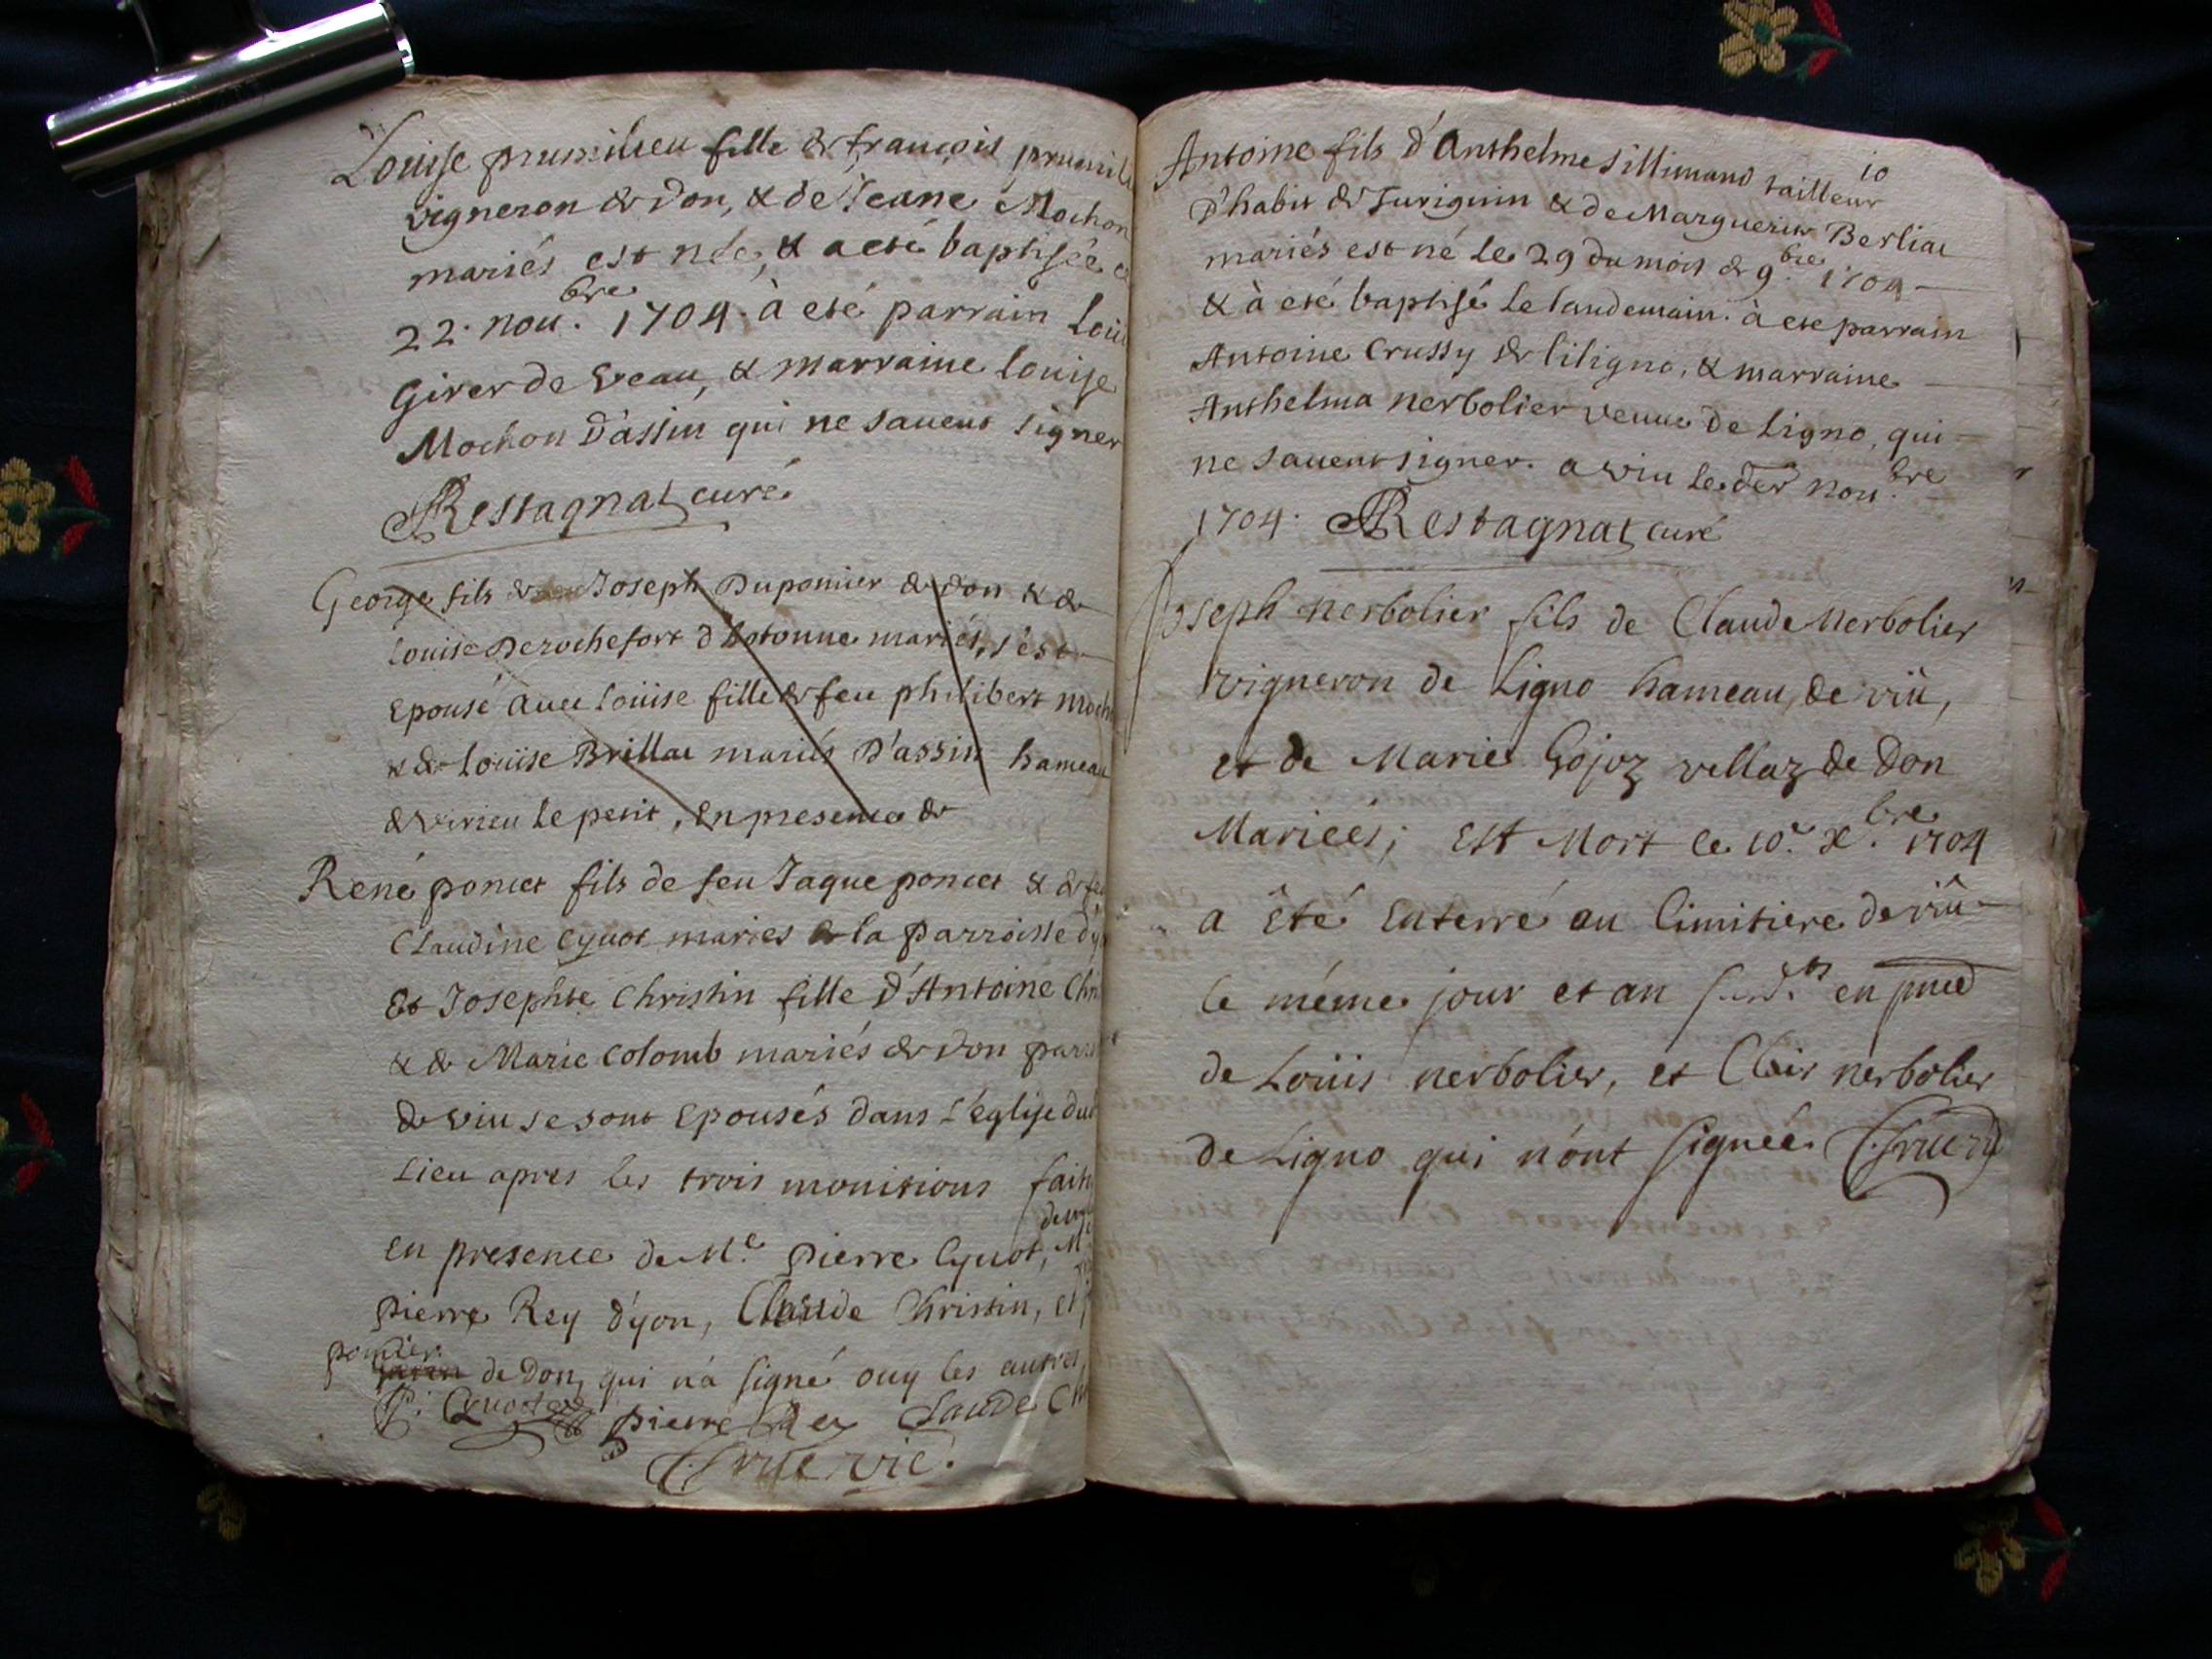 Louise prumilieu fille de françois prumili
vigneron de Don, & de Jeane Mochon
mariés est née, & a eté baptisée
22. nou.bre 1704. à eté parrain Loüi
Girer de Veau, & marraine louise
Mochon D'assin qui ne sauent signer
Restagnat curé
George fils de Joseph Duponier de Don & de
Louise Derochefort d'hotonne mariés, s'est
epousé auec Loüise fille de feu philibert Moch
& de Loüise Brillat mariés D'assin hameau
de virieu le petit, en presence de
René poncet fils de feu Jaque poncet & de feu
Claudine Cyuot mariés de la parroisse d'y
Et Josephte Christin fille d'Antoine Chri
& de Marie Colomb mariés de Don parr
de viu se sont epousés dans l'église dud
Lieu apres les trois monitions faite
en presence de Me. pierre Cyuot, M
pierre Rey d'yon, Claude Christin, et
ponier de Don, qui n'à signé ouy les autres
P: Cyuot pierre Rey Claude Ch
10
Antoine fils d'Anthelme sillimand tailleur
D'habit de Turignin & de Marguerite Berliat
mariés est né le 29 du mois de 9.bre 1704
& à eté baptisé le landemain. à ete parrain
Antoine Crussy de liligno, & marraine
Anthelma nerbolier veuue de Ligno, qui
ne sauent signer. a viu le der nou.bre
1704. Restagnat curé
Joseph nerbolier fils de Claude Nerbolier
vigneron de Ligno hameau, de viû,
et de Marie Gojoz vellaz de Don
Mariées; Est Mort le 10.e x.bre 1704
a êté Enterré au Cimitiere de viû
le méme jour et an susd.ts en pnce
de Loüis nerbolier, et Clair nerbolier
de Ligno qui n'ónt signée.